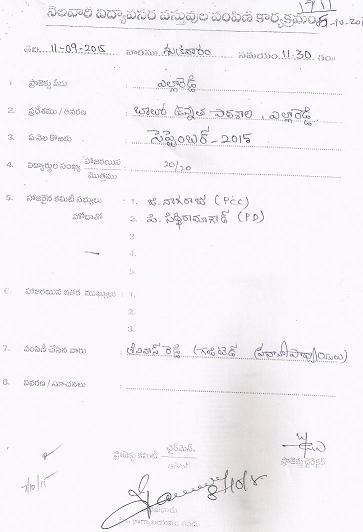 నెలవారి విద్యావసర వస్తువుల పంపిణీ కార్యక్రమం
తేది. 11-09-2015 వారము శుక్రవారం సమయం. 11-30 గం.
1. ప్రాజెక్టు పేరు : ఎల్లారెడ్డి
2. ప్రదేశము / ఆవరణ : బాలుర ఉన్నత పాఠశాల, ఎల్లారెడ్డి
3. ఏ నెల కొరకు : సెప్టెంబర్ - 2015
4. విద్యార్థుల సంఖ్య హాజరయిన / మొత్తము : 20/20
5. హాజరైన కమిటీ సభ్యులు : 1. జి. నాగరాజు (PCC)
హోదాతో 2. పి. సిద్ధిరామాగౌడ్ (PD)
3.
4.
5.
6. హాజరయిన ఇతర ముఖ్యులు : 1.
2.
3.
7. పంపిణీ చేసిన వారు : శ్రీనివాస్ రెడ్డి (గజిటెడ్ ప్రధానోపాధ్యాయులు)
8. వివరణ / సూచనలు :
ప్రాజెక్టు కమిటీ ఛైర్మెన్ ప్రాజెక్టు డైరెక్టర్